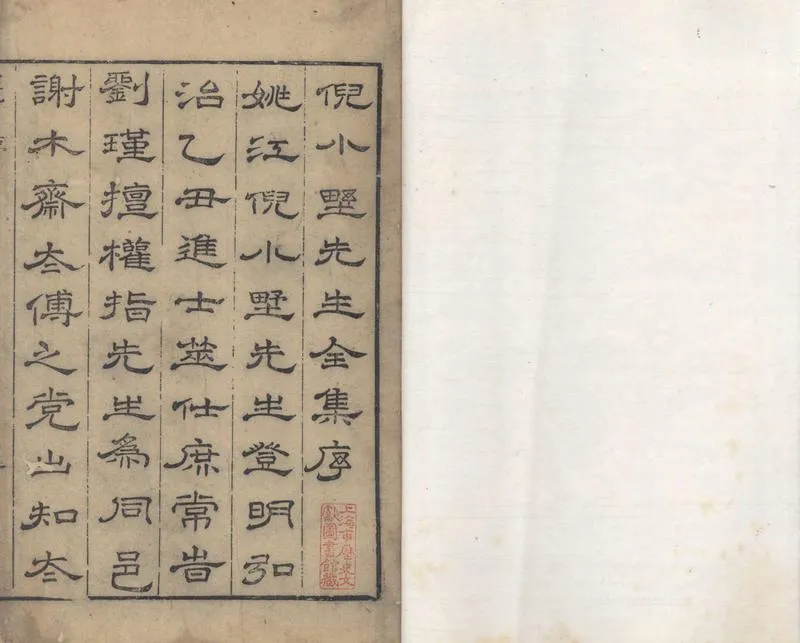 倪小野先生全集序
姚江倪小野先生登明弘
治乙丑進士筮仕庶常時
劉瑾擅權指先生為同邑
謝木齋太傅之党出知太
上海市歷史文
獻圖書館藏